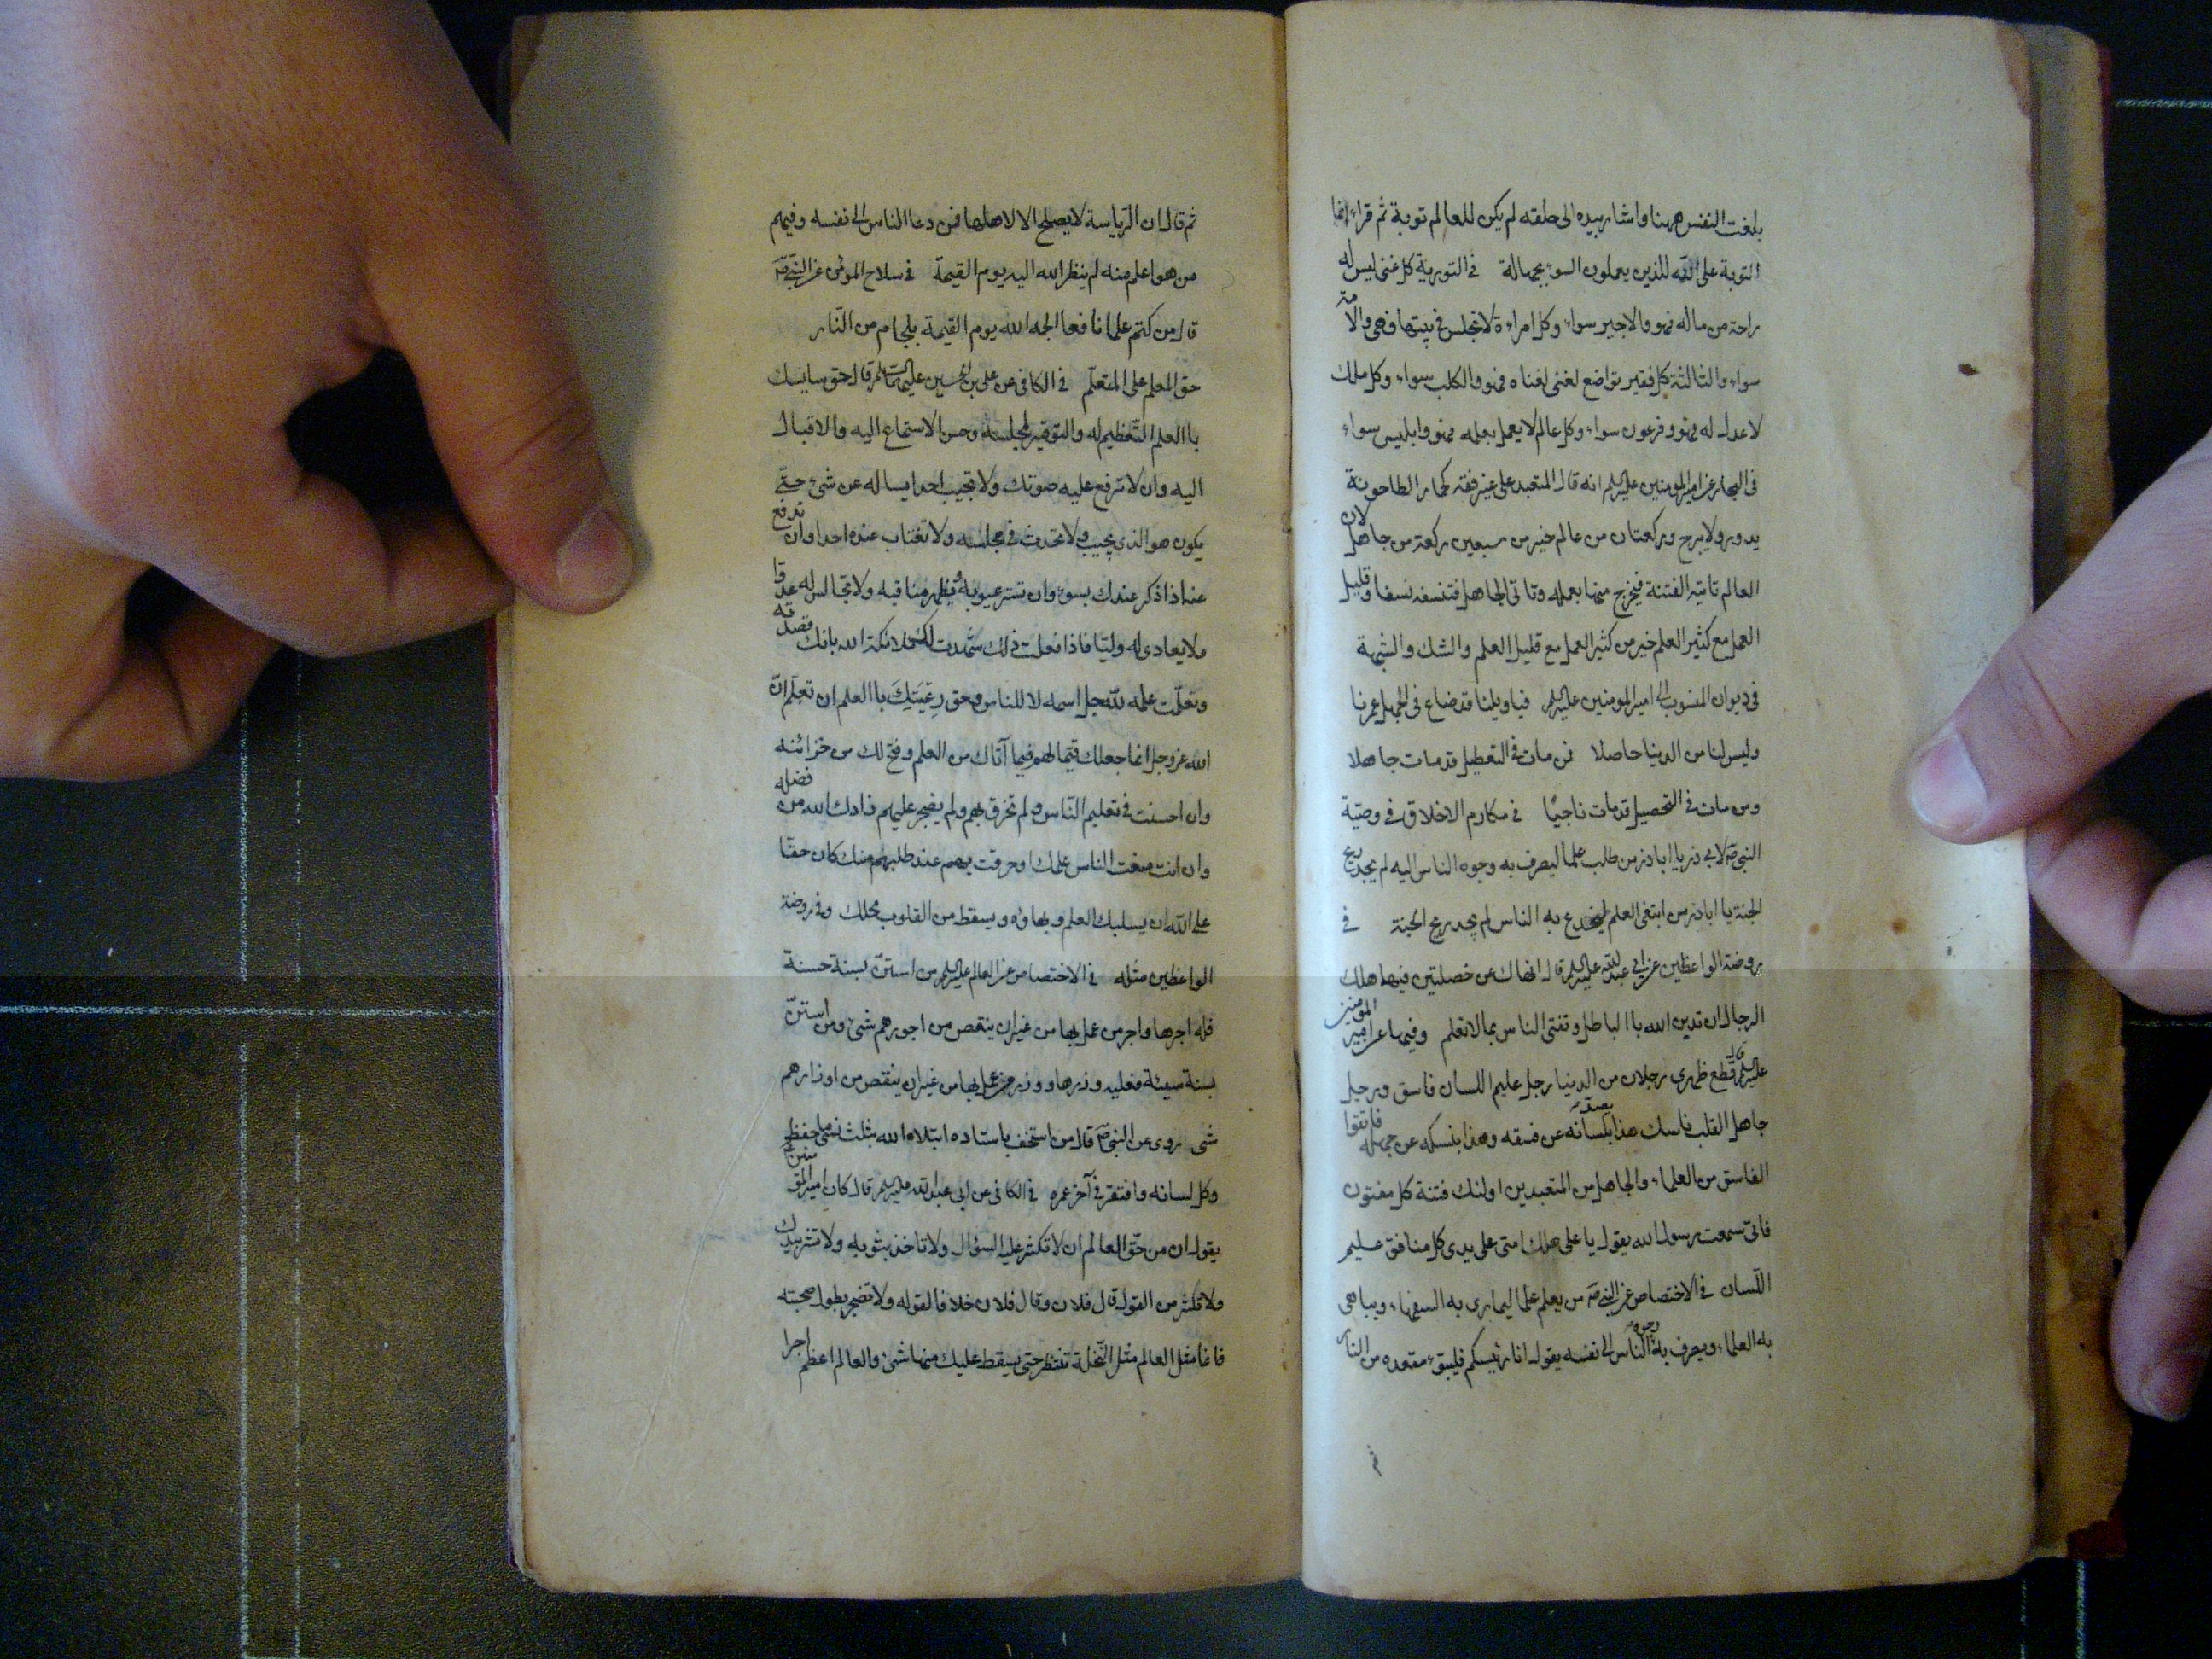 بلغت النفس ههنا واشار بيده الى حلقه لم يكن للعالم توبة ثم قراء انما
التوبة على الله للذين يعملون السوء بجهالة في التورية كل غنى ليس له
راحة من ماله فهو والاجير سواء وكل امراءة لا تجلس في بيتها فهى والامة
سواء والثالثة كل فقير تواضع لغنى لغناه فهو والكلب سواء وكل ملك
لا عدل له فهو وفرعون سواء وكل عالم لا يعمل بعلمه فهو وابليس سواء
في البحار عن امير المومنين عليه السلم انه قال المتعبد على غير فقه كحمار الطاحونة
يدور ولا يبرح وركعتان من عالم خير من سبعين ركعة من جاهل لان
العالم تاتيه الفتنة فيخرج منها بعمله وتاتى الجاهل فتنسفه نسفا وقليل
العمل مع كثير العلم خير من كثير العمل مع قليل العلم والشك والشبهة
في ديوان المنسوب الى امير المومنين عليه السلم فيا ويلنا قد ضاع فى الجهل عمرنا
وليس لنا من الدينا حاصلا فمن مات فى التعطيل قد مات جاهلا
ومن مات فى التحصيل قد مات ناجيا في مكارم الاخلاق في وصية
النبى ص لابي ذر يا اباذر من طلب علما ليصرف به وجوه الناس اليه لم يجد ريح
الجنة يا اباذر من ابتغى العلم ليخدع به الناس لم يجد ريح الجنة في
روضة الواعظين عن ابي عبد الله عليه السلم قال انهاك عن خصلتين فيهما هلك
الرجال ان تدين الله با الباطل وتفتى الناس بما لا تعلم وفيها عن امير المومنين
عليه السلم قال قطع ظهرى رجلان من الدينا رجل عليم اللسان فاسق ورجل
جاهل القلب ناسك هذا يصد بلسانه عن فسقه وهذا بنسكه عن جهله فاتقوا
الفاسق من العلماء والجاهل من المتعبدين اولئك فتنة كل مفتون
فانى سمعت رسول الله يقول يا على هلك امتى على يدى كل منافق عليم
اللسان في الاختصاص عن النبي ص من يعلم علما ليمارى به السفهاء ويباهى
به العلماء ويصرف به وجوه الناس الى نفسه يقول انا رئيسكم فليتبوء مقعده من النار
ثم
ثم قال ان الرياسة لا يصلح الا لاهلها فمن دعا الناس الى نفسه وفيهم
من هو اعلم منه لم ينظر الله اليه يوم القيمة في سلاح المومن عن النبي ص
قال من كتم علما نافعا الجمه الله يوم القيمة بلجام من النار
حق المعلم على المتعلم في الكافى عن على بن الحسين عليهما السلم قال حق سايسك
با العلم التعظيم له والتوقير لمجلسه وحسن الاستماع اليه والاقبال
اليه وان لا ترفع عليه صوتك ولا تجيب احدا يساله عن شىء حتى
يكون هو الذى يجيب ولا تحدث في مجلسه ولا تغتاب عنده احدا وان تدفع
عنه اذا ذكر عندك بسوء وان تستر عيوبه وتظهر مناقبه ولا تجالس له عدوا
ولا يعادى له وليا فاذا فعلت ذلك شهدت لك ملائكة الله بانك قصدته
وتعلمت علمه لله جل اسمه لا للناس وحق رعيتك با العلم ان تعلم ان
الله عز وجل انما جعلك قيما لهم فيما آتاك من العلم وفتح لك من خزائنه
وان احسنت في تعليم الناس ولم تخرق بهم ولم يضجر عليهم زادك الله من فضله
وان انت منعت الناس علمك او خرقت بهم عند طلبهم منك كان حقا
على الله ان يسلبك العلم وبهاؤه ويسقط من القلوب محلك وفي روضة
الواعظين مثله في الاختصاص عن العالم عليه السلم من استن بسنة حسنة
فله اجرها واجر من عمل بها من غير ان ينقص من اجورهم شىء ومن استن
بسنة سيئة فعليه وزرها ووزر من عمل بها من غير ان ينقص من اوزارهم
شى روى عن النبى ص قال من استخف باستاده ابتلاه الله بثلث نسى ما حفظ
وكل لسانه وافتقر في آخر عمره في الكافى عن ابى عبد الله عليه السلم قال كان امير المؤمنين
يقول ان من حق العالم ان لا تكثر عليه السؤال ولا تاخذ بثوبه ولا تشر بيدك
ولا تكثر من القول قال فلان وقال فلان خلافا لقوله ولا تضجر بطول صحبته
فانما مثل العالم مثل النخلة تنتظر حتى يسقط عليك منها شىء والعالم اعظم اجرا